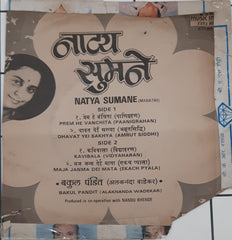 नाट्य
सुमने
NATYA SUMANE (MARATHI)
SIDE 1
१. प्रेम हे वंचिता (पाणिग्रहण)
PREM HE VANCHITA (PAANIGRAHAN)
२. धावत येई सख्या (अमृतसिद्धि)
DHAVAT YEI SAKHYA (AMRUT SIDDHI)
SIDE 2
१. कविबाला (विद्याहरण)
KAVIBALA (VIDYAHARAN)
२. मज जन्म देई माता (एकच प्याला)
MAJA JANMA DEI MATA (EKACH PYALA)
बकुल पंडित (अलकनंदा वाडेकर)
BAKUL PANDIT (ALAKHANDA WADEKAR)
Produced in co-operation with NANDU BHENDE
MUSIC IN